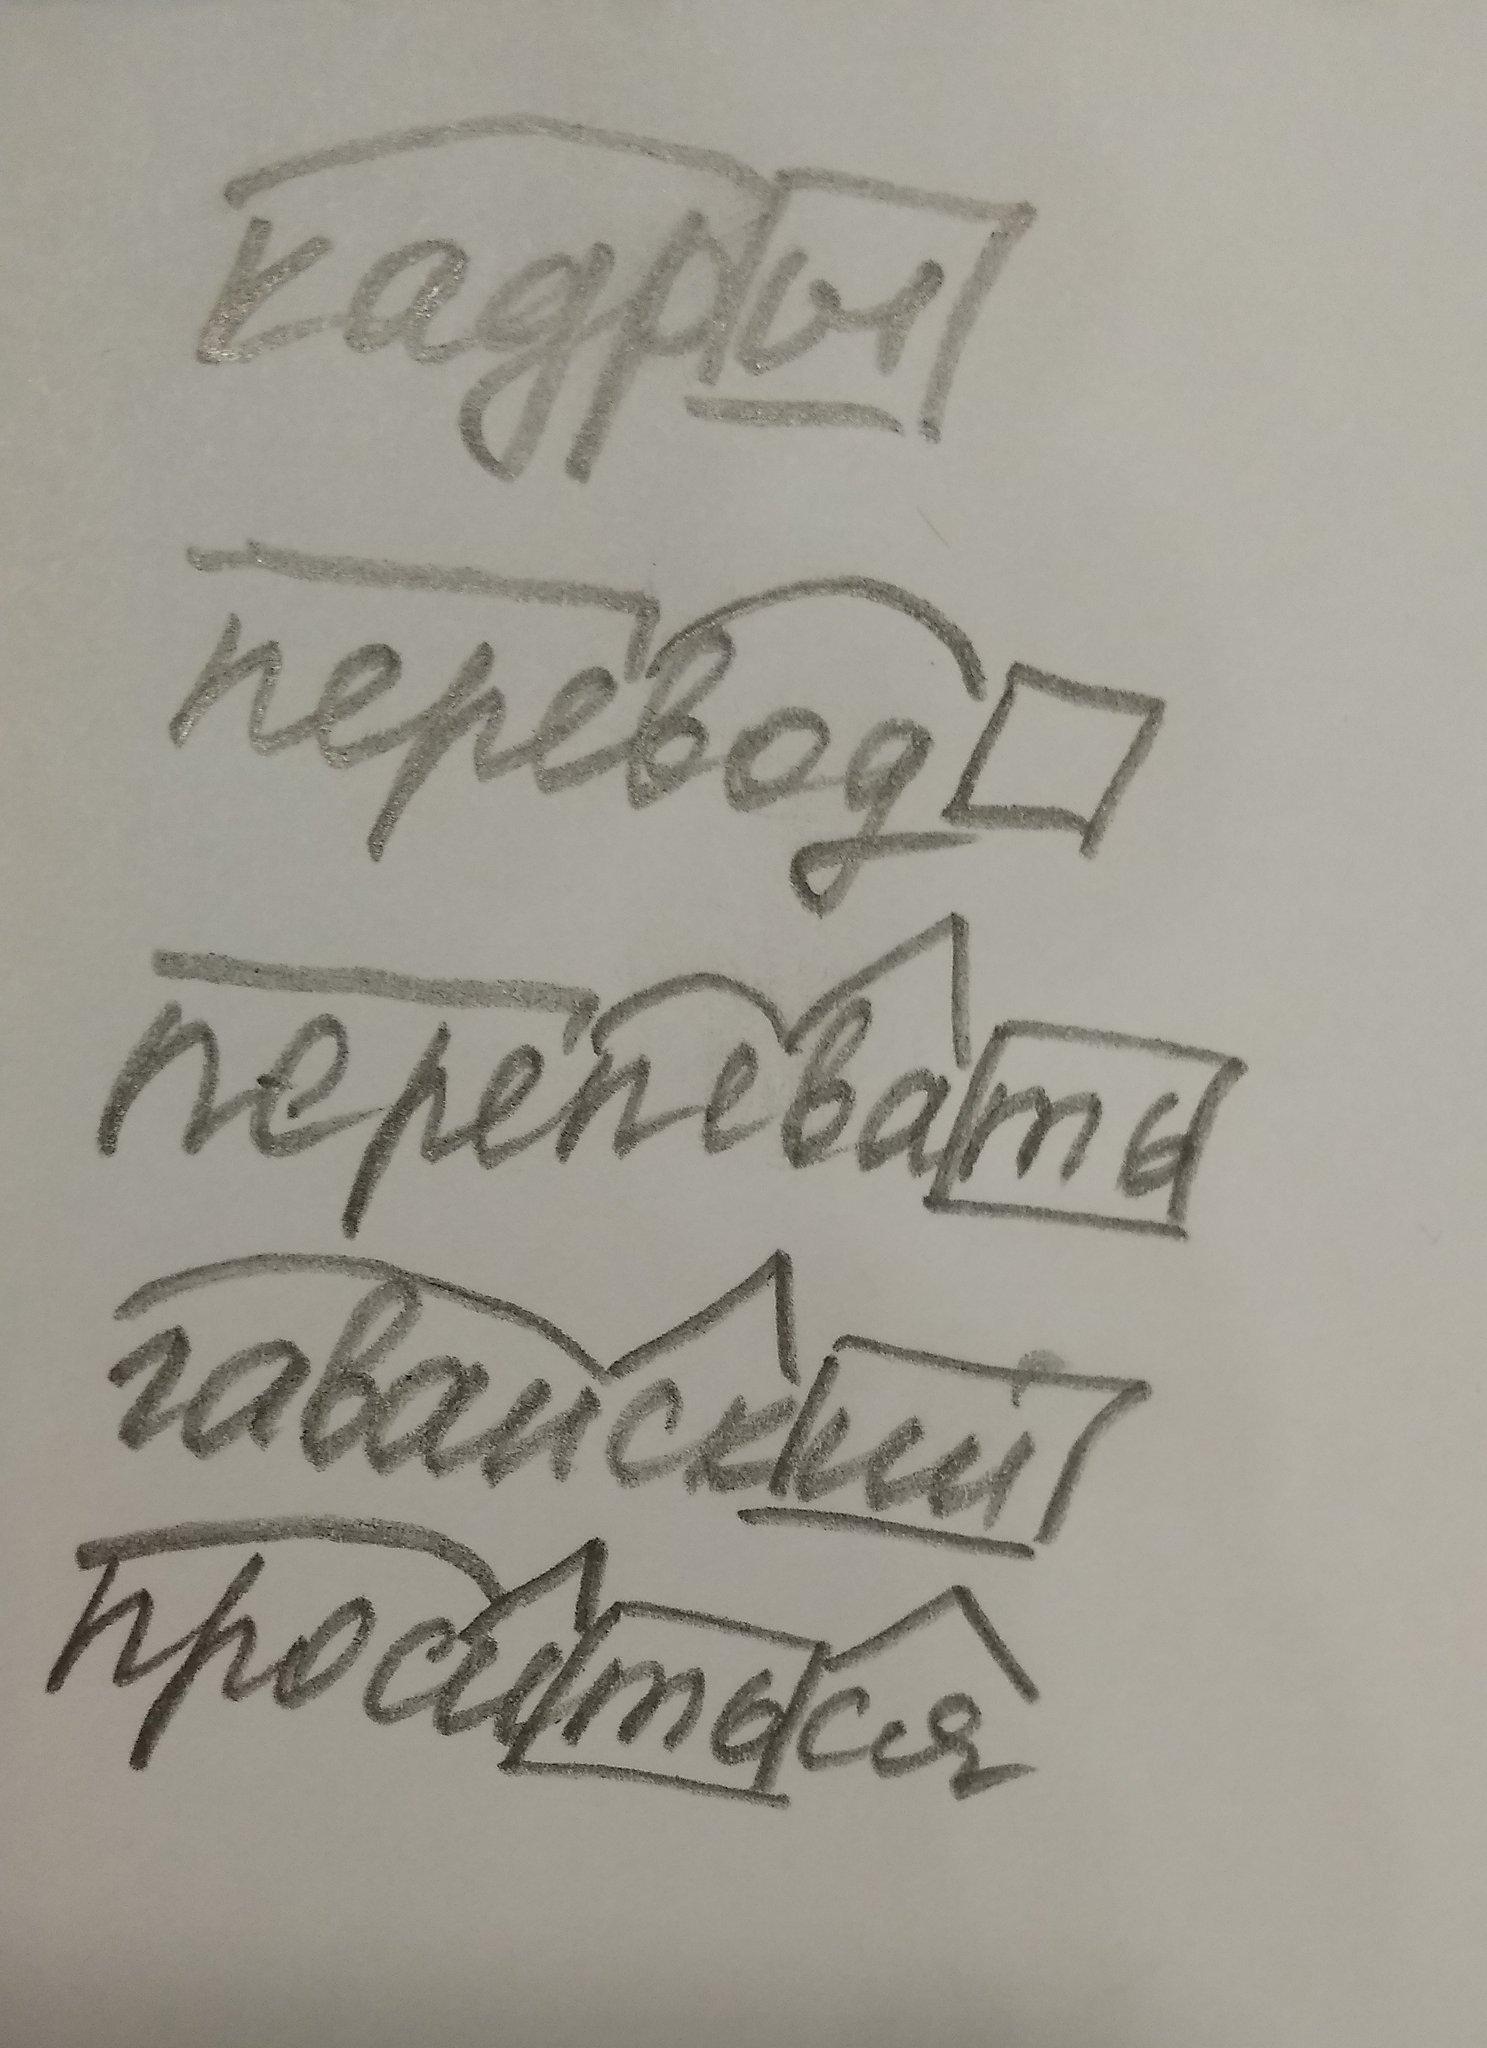 кадры
перевод
перепевать
гавайский
проситься